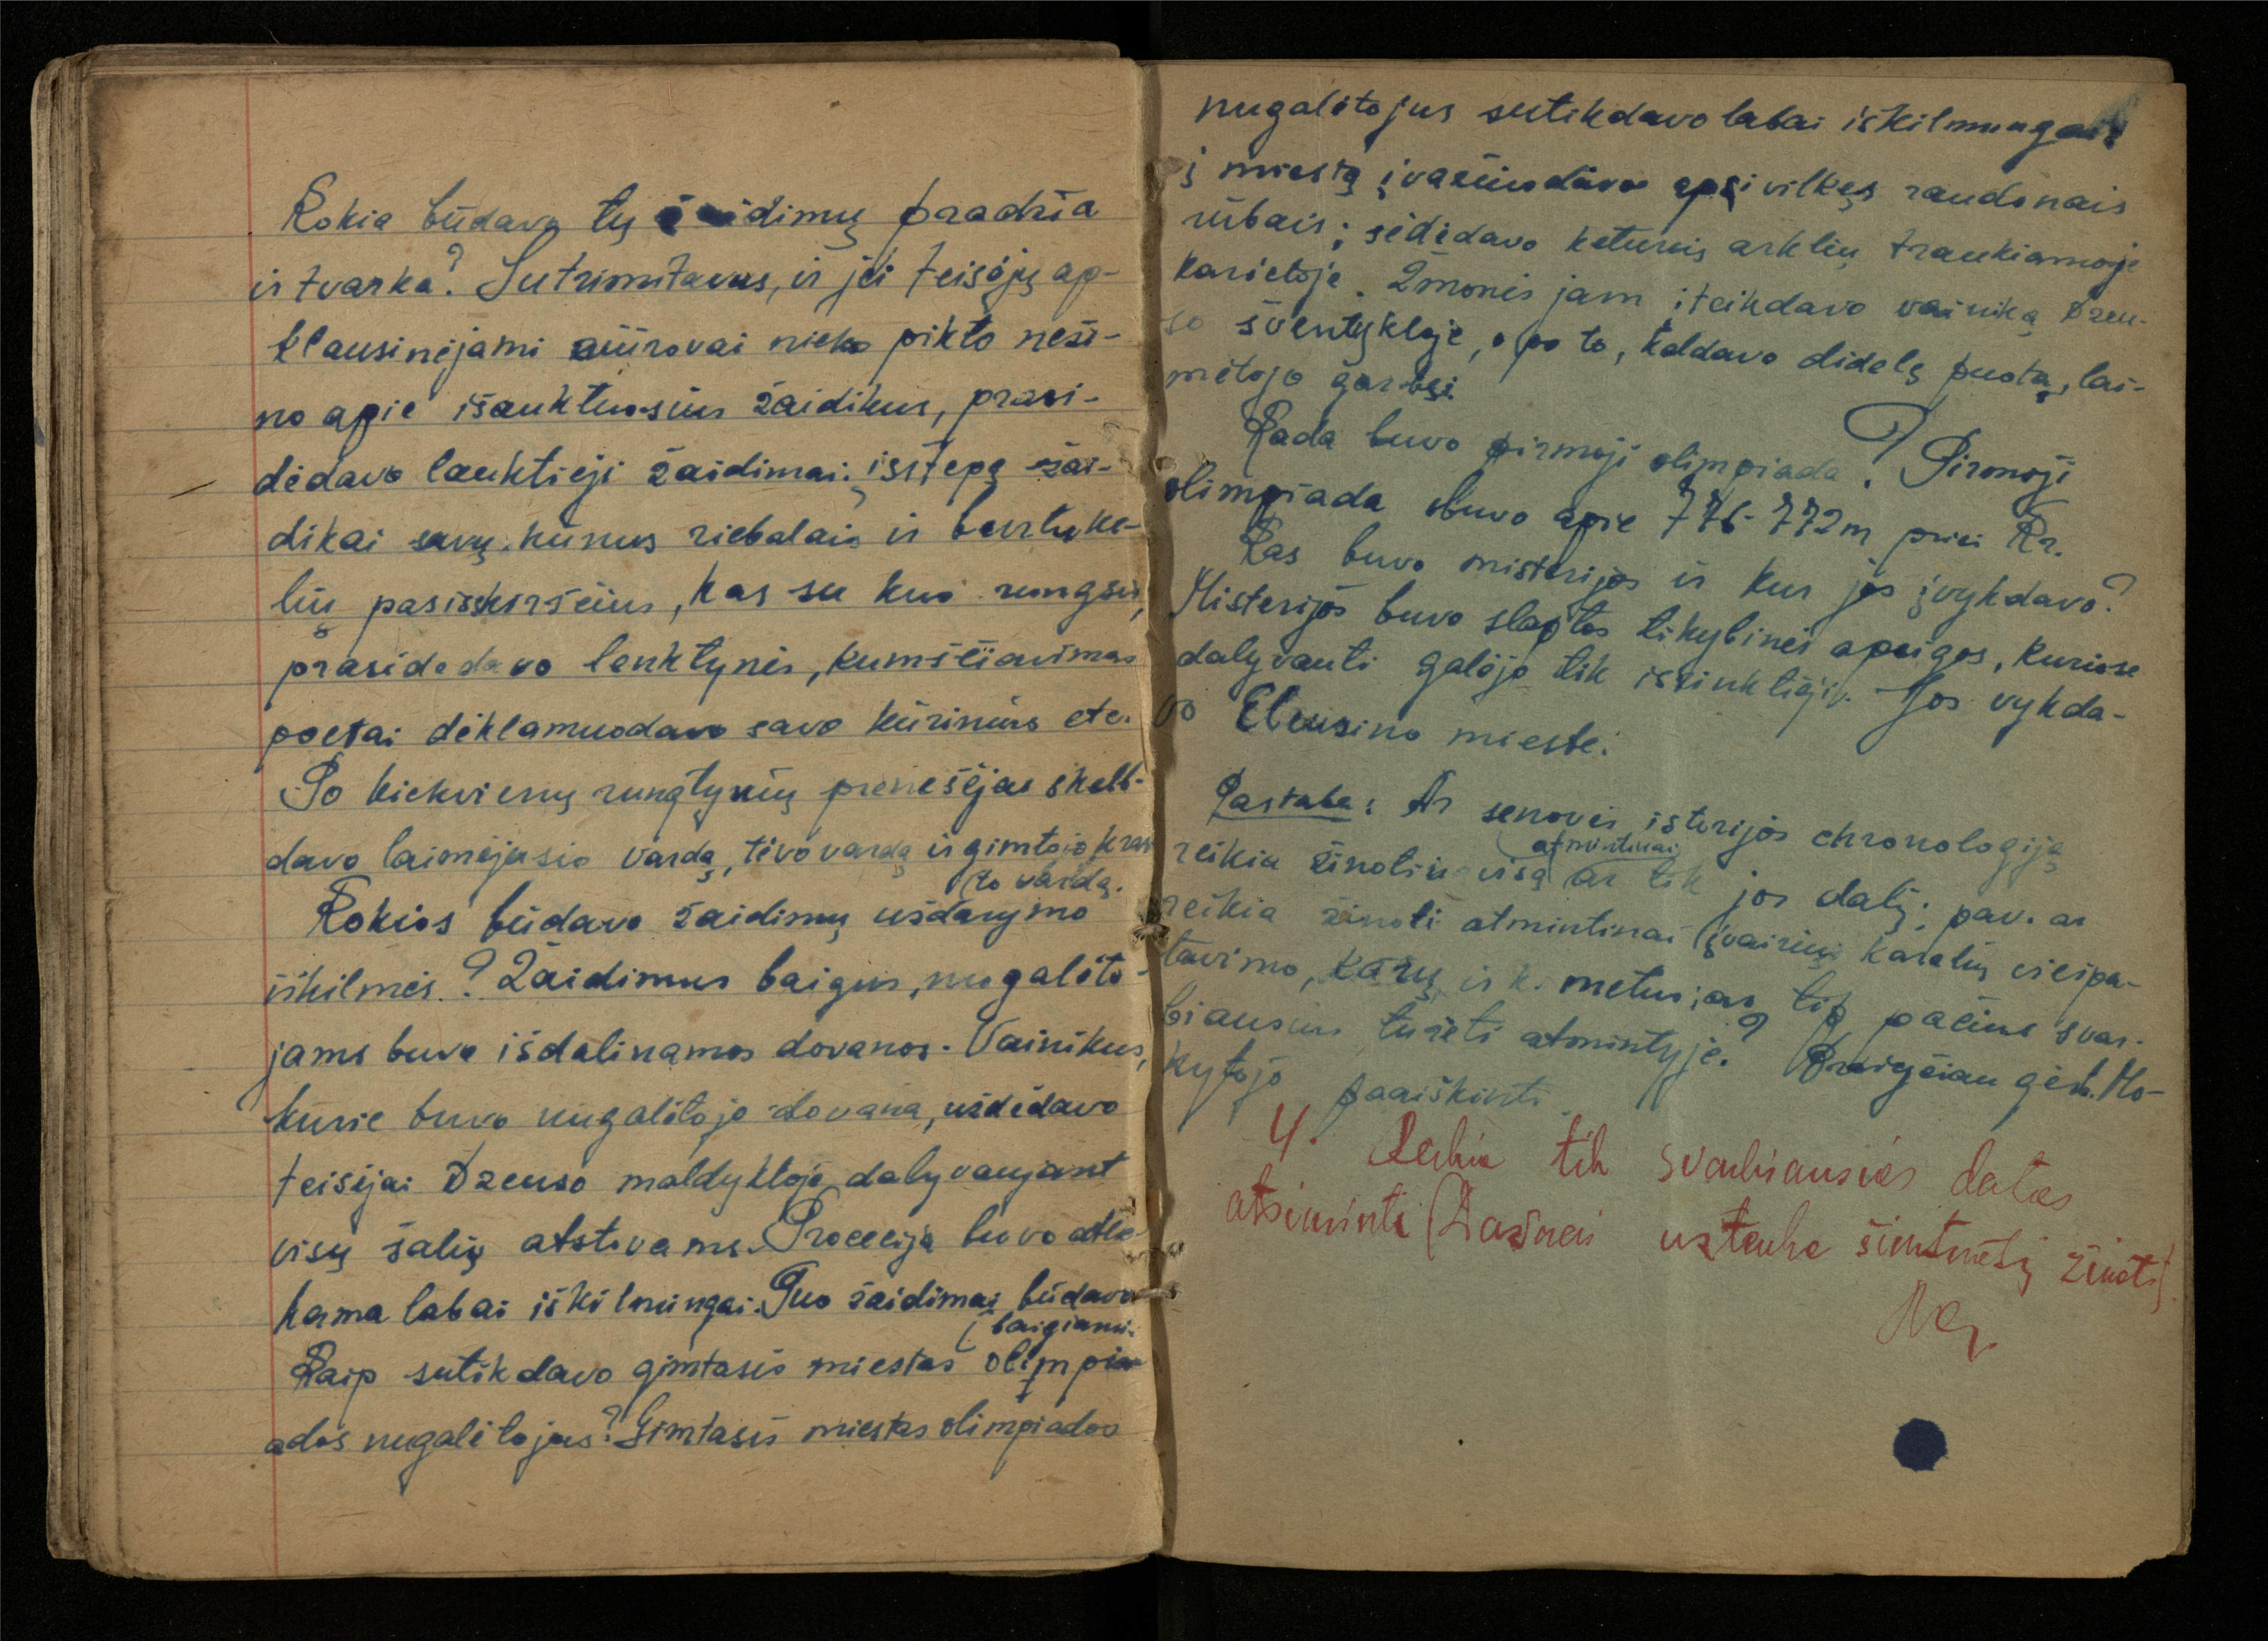 Kokia būdavo tų žaidimų pradžia
ir tvarka? Sutrimitavus, ir jei teisėjų ap-
klausinėjami žiūrovai nieko pikto neži-
no apie išauktuosius žaidikus, prasi-
dėdavo lauktieji žaidimai: ištepę žai-
dikai savų kūnus riebalais ir burtuke-
lių pasiskirsčius, kas su kuo rungsis,
prasidėdavo lenktynės, kumščiavimas
poetai deklamuodavo savo kūrinius etc.
Po kiekvienų rungtynių pranešėjas skelb-
davo laimėjusio vardą, tėvo vardą ir gimtojo kraš
to vardą.
Kokios būdavo žaidimų uždarymo
iškilmės? Žaidimus baigus, nugalėto-
jams buvo išdalinamos dovanos. Vainikus,
kurie buvo nugalėtojo dovana, uždėdavo
teisėjai Dzeuso maldykloje, dalyvaujant
visų šalių atstovams. Procecija buvo atlie-
kama labai iškilmingai. Tuo žaidimai būdavo
baigiami.
Kaip sutikdavo gimtasis miestas olimpia
ados nugalėtojus? Gimtasis miestas olimpiados
nugalėtojus sutikdavo labai iškilmingai:
į miestą įvažiuodavo apsivilkęs raudonais
rūbais; sėdėdavo keturių arklių traukiamoje
karietoje. Žmonės jam įteikdavo vainiką Dzeu-
so šventykloje, o po to, keldavo didelę puotą, lai-
mėtojo garbei.
Kada buvo pirmoji olimpiada? Pirmoji
olimpiada buvo apie 776-772m prieš Kr.
Kas buvo misterijos ir kur jos įvykdavo?
Misterijos buvo slaptos tikybinės apeigos, kuriose
dalyvauti galėjo tik išrinktieji. Jos vykda-
vo Eleusino mieste.
Pastaba: Ar senovės istorijos chronologiją
atmintinai
reikia žinoti visą ar tik jos dalį; pav. ar
reikia žinoti atmintinai įvairių karalių viešpa-
tavimo, karų ir k. metus; ar tik pačius svar-
biausius turėti atmintyje? Prašyčiau gerb. Mo-
kytojo paaiškinti.
4. Reikia tik svarbiausias datas
atsiminti (Dažnai užtenka šimtmetį žinoti)